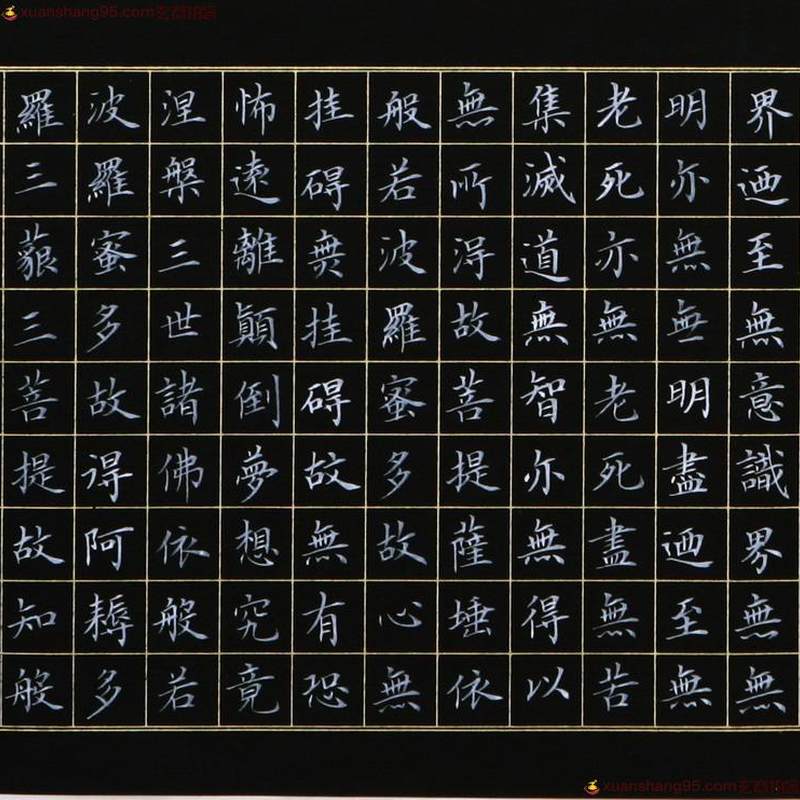 界迺至無意識界無無
明亦無無明盡迺至無
老死亦無老死盡無苦
集滅道無智亦無得以
無所得故菩提薩埵依
般若波羅蜜多故心無
挂碍無挂碍故無有恐
怖遠離顛倒夢想究竟
涅槃三世諸佛依般若
波羅蜜多故得阿耨多
羅三藐三菩提故知般
xuanshang95.com
xuanshang95.com